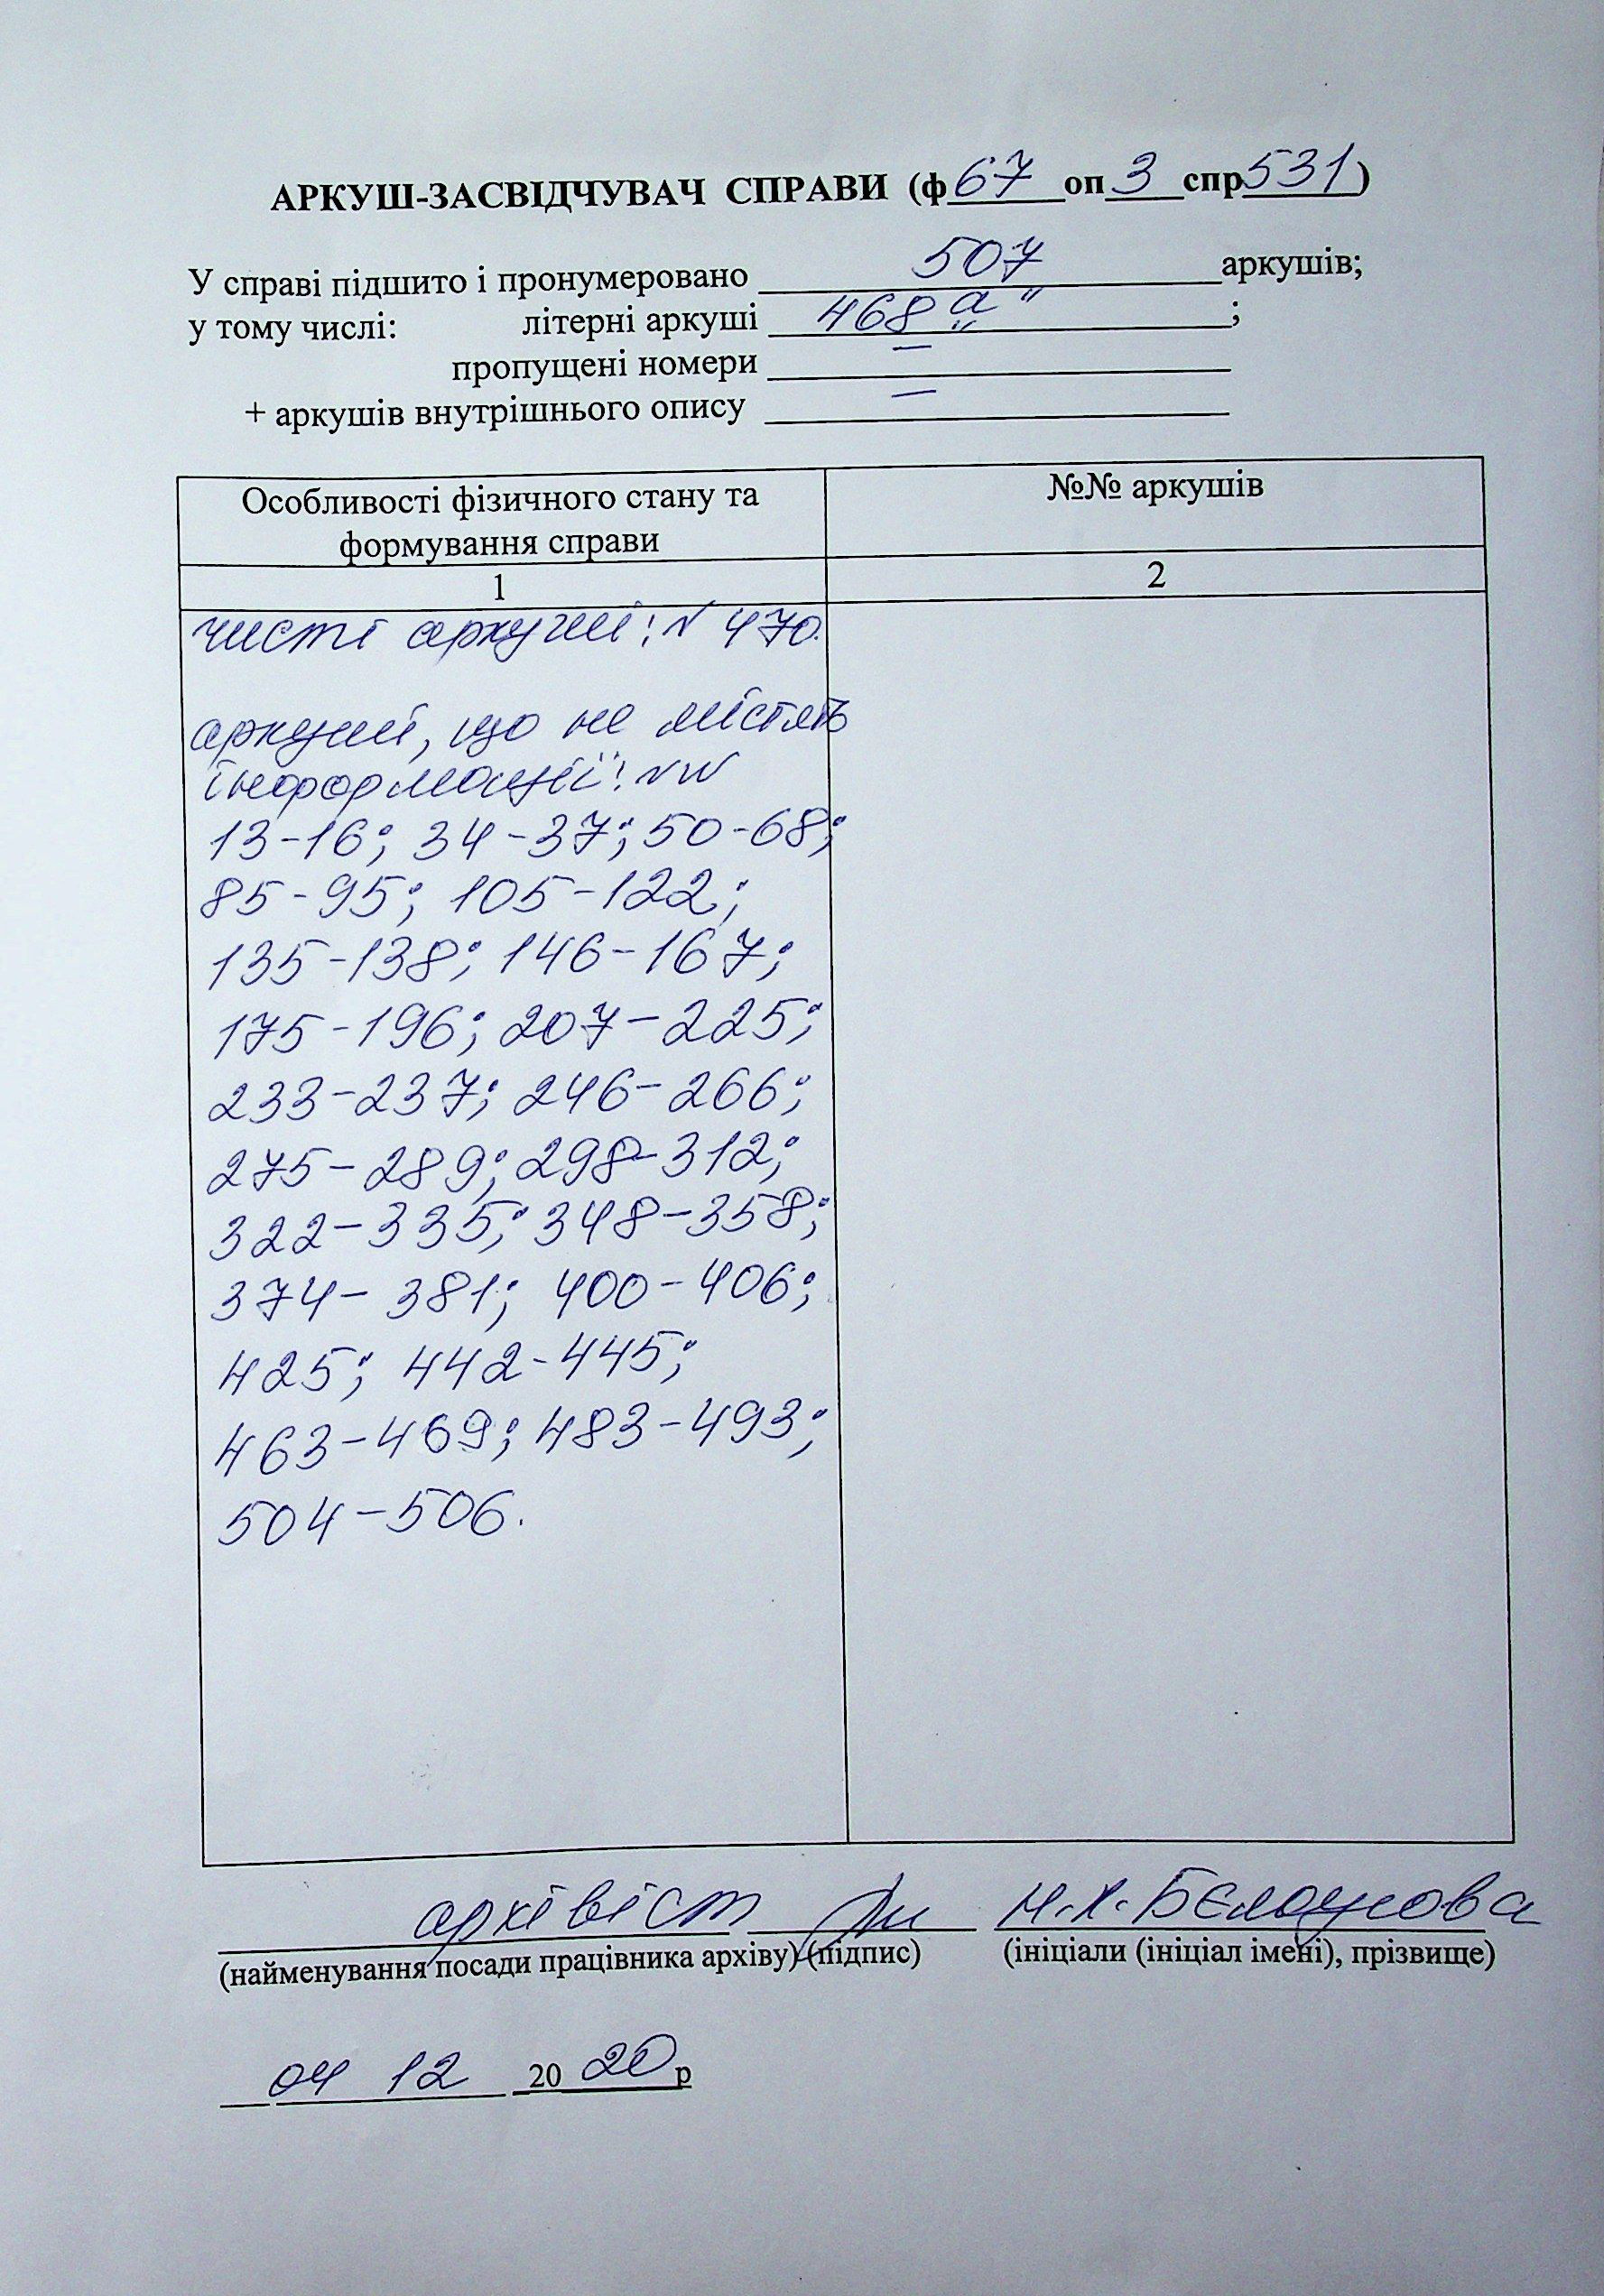 АРКУШ-ЗАСВІДЧУВАЧ СПРАВИ (ф 67 оп 3 спр 531)
У справі підшито і пронумеровано 507 аркушів;
у тому числі: літерні аркуші 468 „а“ ;
пропущені номери —
+ аркушів внутрішнього опису —
Особливості фізичного стану та
формування справи
№№ аркушів
1
2
чисті аркуші: N 470.
аркуші, що не містять
інформації: NN
13-16; 34-37; 50-68;
85-95; 105-122;
135-138; 146-167;
175-196; 207-225;
233-237; 246-266;
275-289; 298-312;
322-335; 348-358;
374-381; 400-406;
425; 442-445;
463-469; 483-493;
504-506.
архівіст
(найменування посади працівника архіву) (підпис) (ініціали (ініціал імені), прізвище)
04 12 2020 р